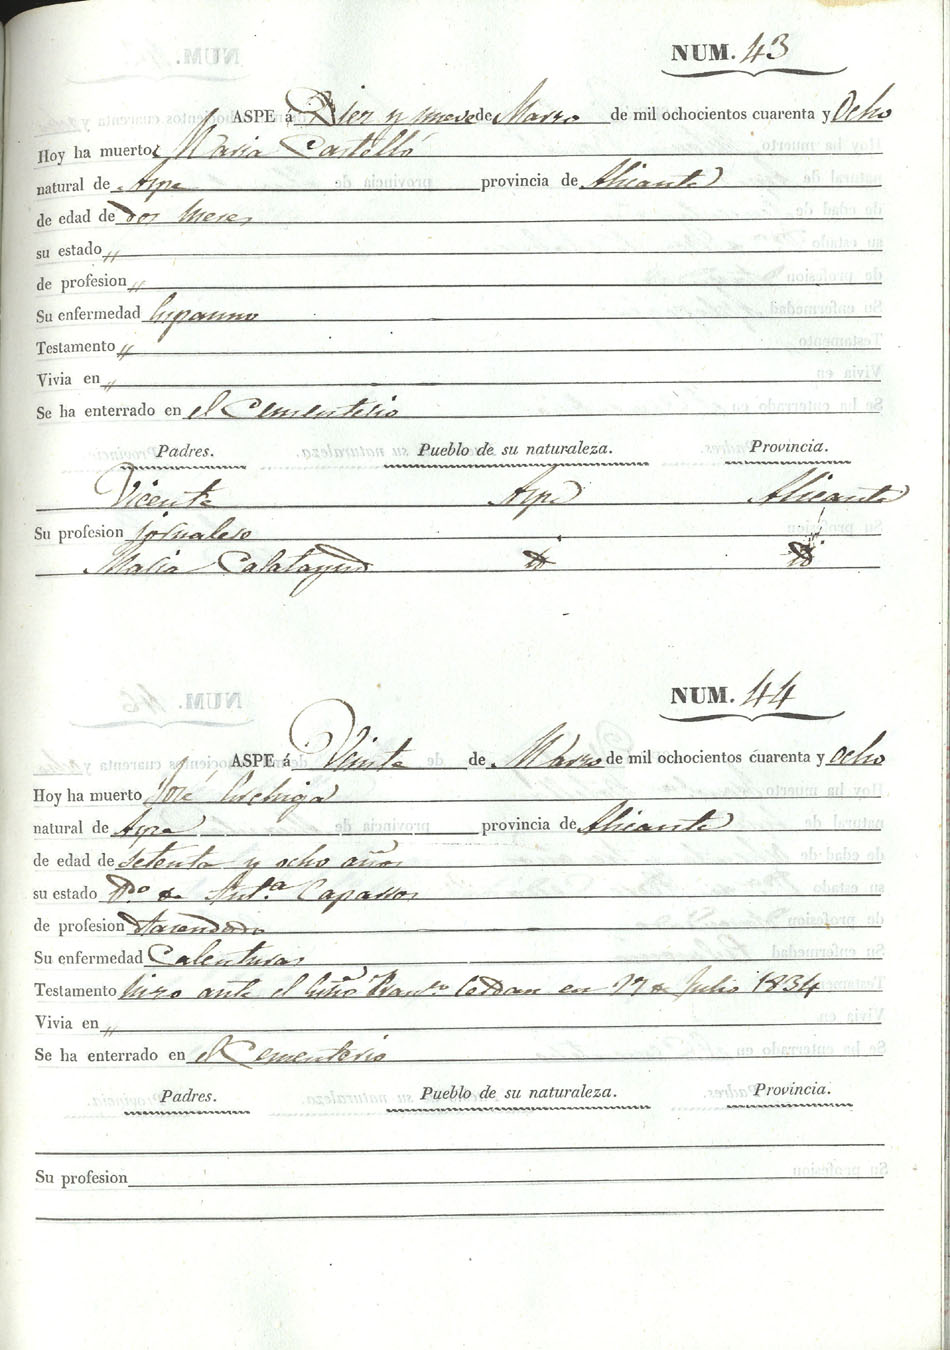 NUM. 43
ASPE á Diez y nueve de Marzo de mil ochocientos cuarenta y Ocho
Hoy ha muerto Maria Castelló
natural de Aspe provincia de Alicante
de edad de dos meses
su estado "
de profesion "
Su enfermedad
Testamento "
Vivia en "
Se ha enterrado en el Cementerio
Padres. Pueblo de su naturaleza. Provincia.
Vicente Aspe Alicante
Su profesion jornalero
Maria Calatayud
NUM. 44
ASPE á Veinte de Marzo de mil ochocientos cuarenta y ocho
Hoy ha muerto José
natural de Aspe provincia de Alicante
de edad de setenta y ocho años
su estado
de profesion
Su enfermedad Calenturas
Testamento hizo ante el en de Julio 1834
Vivia en "
Se ha enterrado en el Cementerio
Padres. Pueblo de su naturaleza. Provincia.
Su profesion